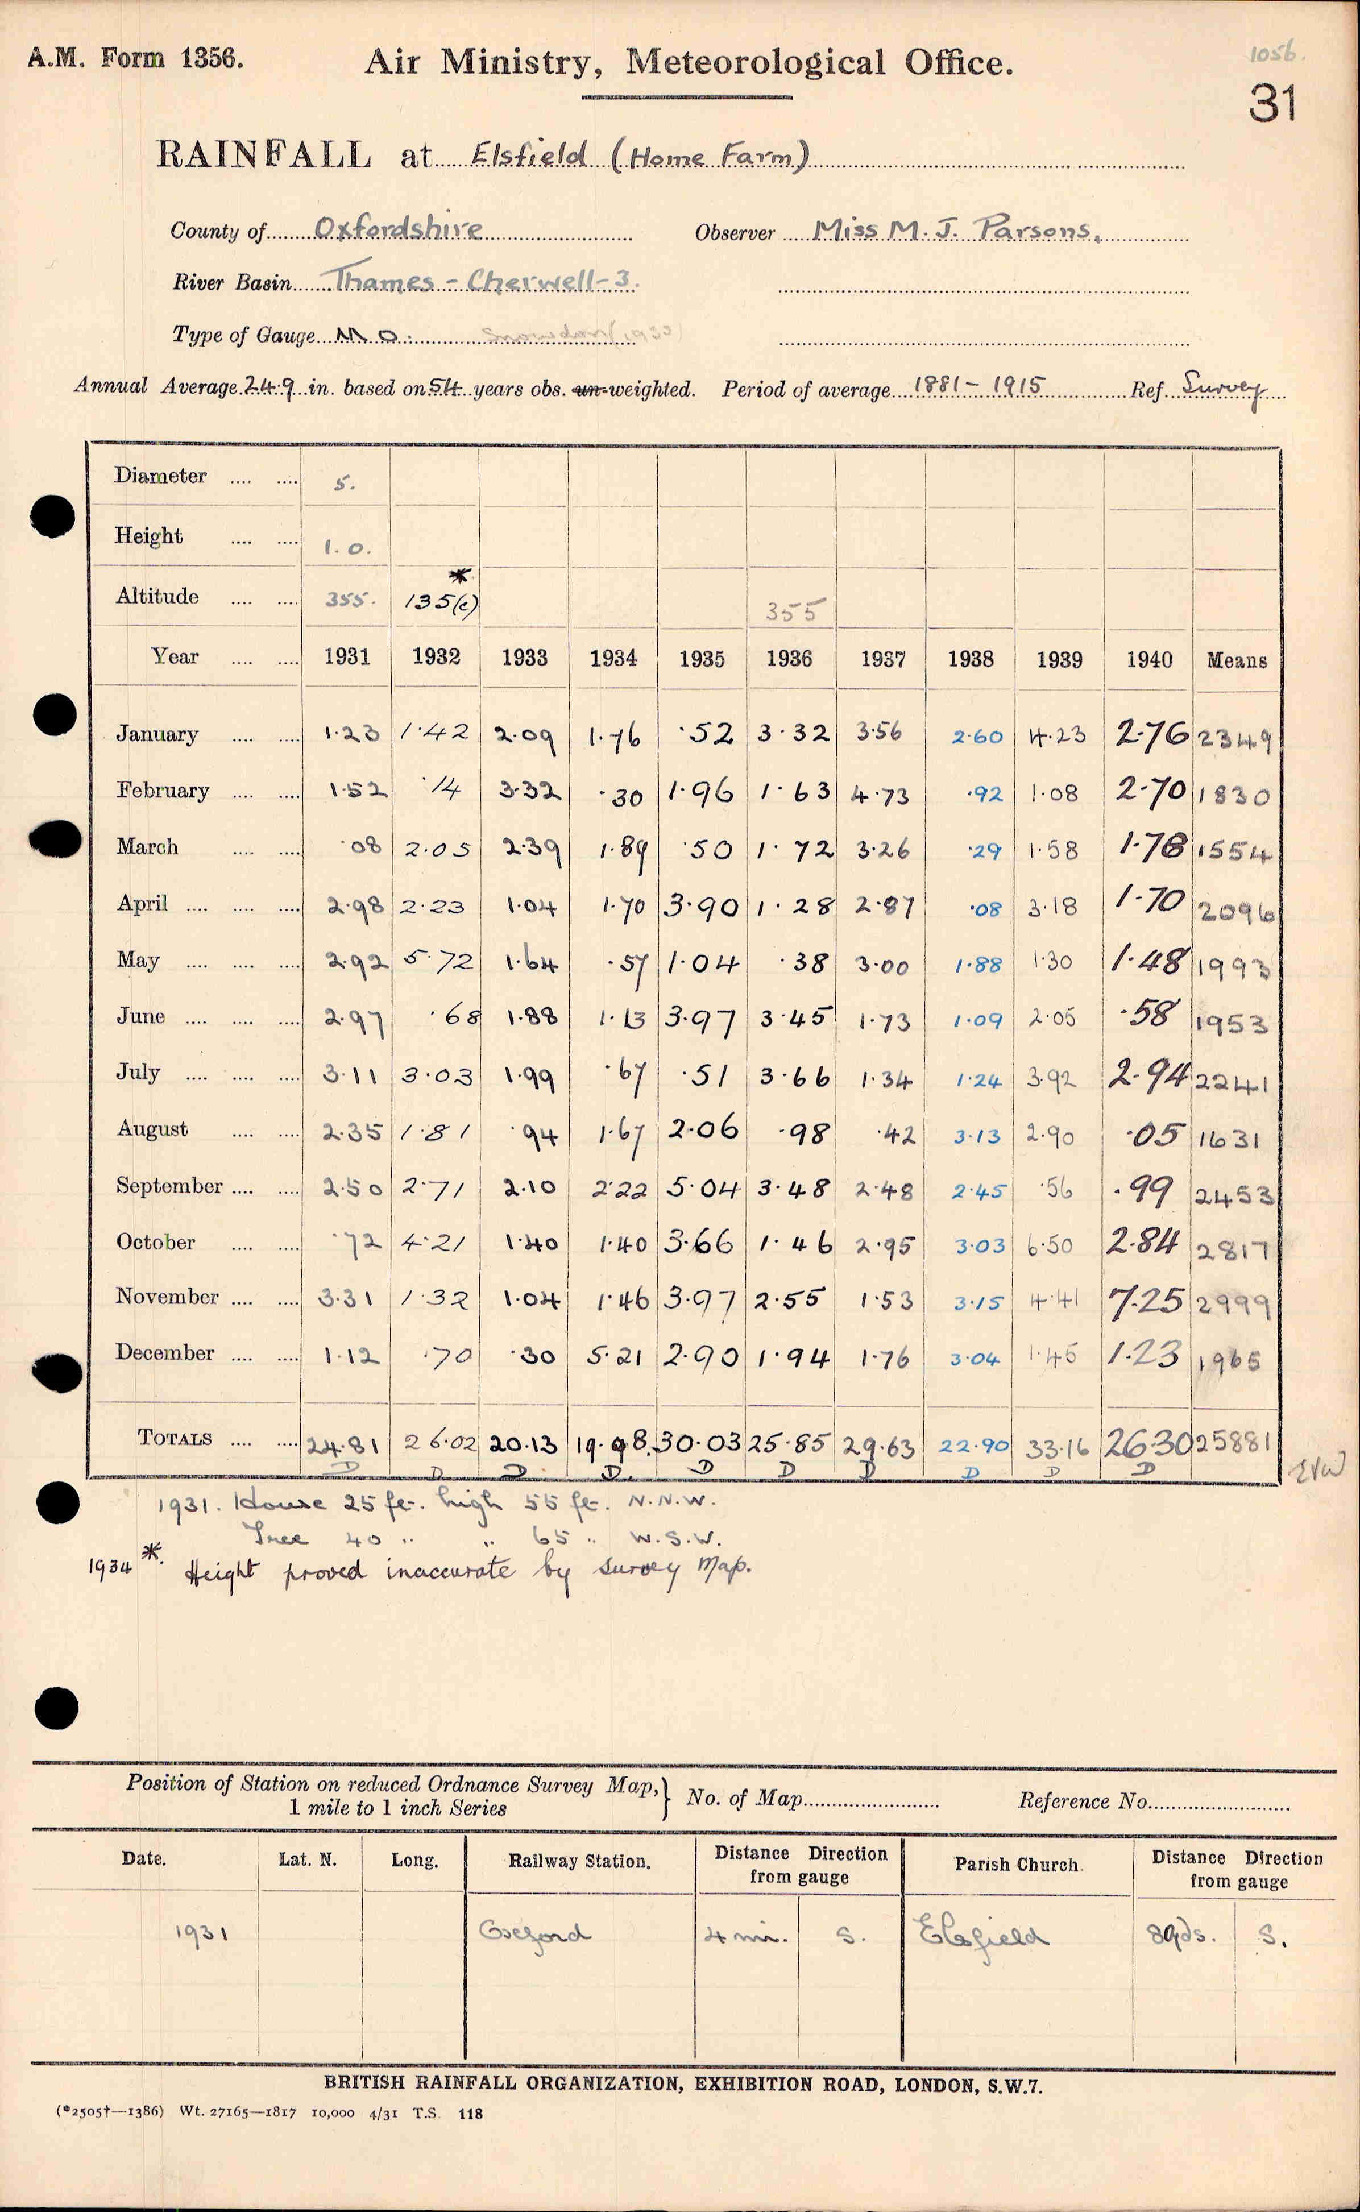 A.M. Form 1356.
Air Ministry, Meteorological Office.
1056.
31
RAINFALL at Elsfield (Home Farm)
County of Oxfordshire Observer Miss M. J. Parsons.
River Basin Thames - Cherwell - 3.
Type of Gauge M O. Snowdon (1933)
Annual Average 24.9 in. based on 54 years obs. un-weighted. Period of average 1881 - 1915 Ref. Survey
Diameter 5.
Height 1.0.
*
Altitude 355. 135(e) 355
Year 1931 1932 1933 1934 1935 1936 1937 1938 1939 1940 Means
January 1.23 1.42 2.09 1.76 .52 3.32 3.56 2.60 4.23 2.76 2349
February 1.52 .14 3.32 .30 1.96 1.63 4.73 .92 1.08 2.70 1830
March .08 2.05 2.39 1.89 .50 1.72 3.26 .29 1.58 1.78 1554
April 2.98 2.23 1.04 1.70 3.90 1.28 2.87 .08 3.18 1.70 2096
May 2.92 5.72 1.64 .57 1.04 .38 3.00 1.88 1.30 1.48 1993
June 2.97 .68 1.88 1.13 3.97 3.45 1.73 1.09 2.05 .58 1953
July 3.11 3.03 1.99 .67 .51 3.66 1.34 1.24 3.92 2.94 2241
August 2.35 1.81 .94 1.67 2.06 .98 .42 3.13 2.90 .05 1631
September 2.50 2.71 2.10 2.22 5.04 3.48 2.48 2.45 .56 .99 2453
October .72 4.21 1.40 1.40 3.66 1.46 2.95 3.03 6.50 2.84 2817
November 3.31 1.32 1.04 1.46 3.97 2.55 1.53 3.15 4.41 7.25 2999
December 1.12 .70 .30 5.21 2.90 1.94 1.76 3.04 1.45 1.23 1965
TOTALS 24.81 26.02 20.13 19.98. 30.03 25.85 29.63 22.90 33.16 26.30 25881
D D D D. D D D D D D
1931. House 25 ft. high 55 ft. N.N.W.
Tree 40 " " 65 " W.S.W.
1934 *. Height proved inaccurate by survey Map.
Position of Station on reduced Ordnance Survey Map, 1 mile to 1 inch Series } No. of Map Reference No.
Date. Lat. N. Long. Railway Station. Distance Direction from gauge Parish Church. Distance Direction from gauge
1931 Oxford 4 mi. S. Elsfield 8 yds. S.
BRITISH RAINFALL ORGANIZATION, EXHIBITION ROAD, LONDON, S.W.7.
(*2505†—1386) Wt. 27165—1817 10,000 4/31 T.S. 118